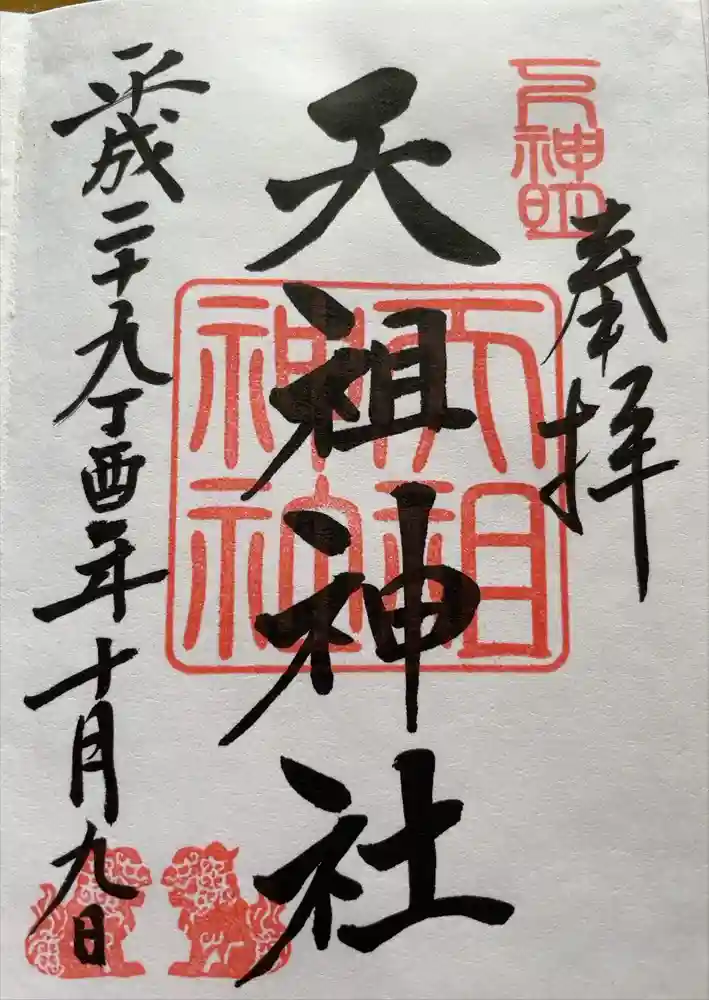 奉拝
元神明
天祖神社
天祖神社
平成二十九丁酉年十月九日